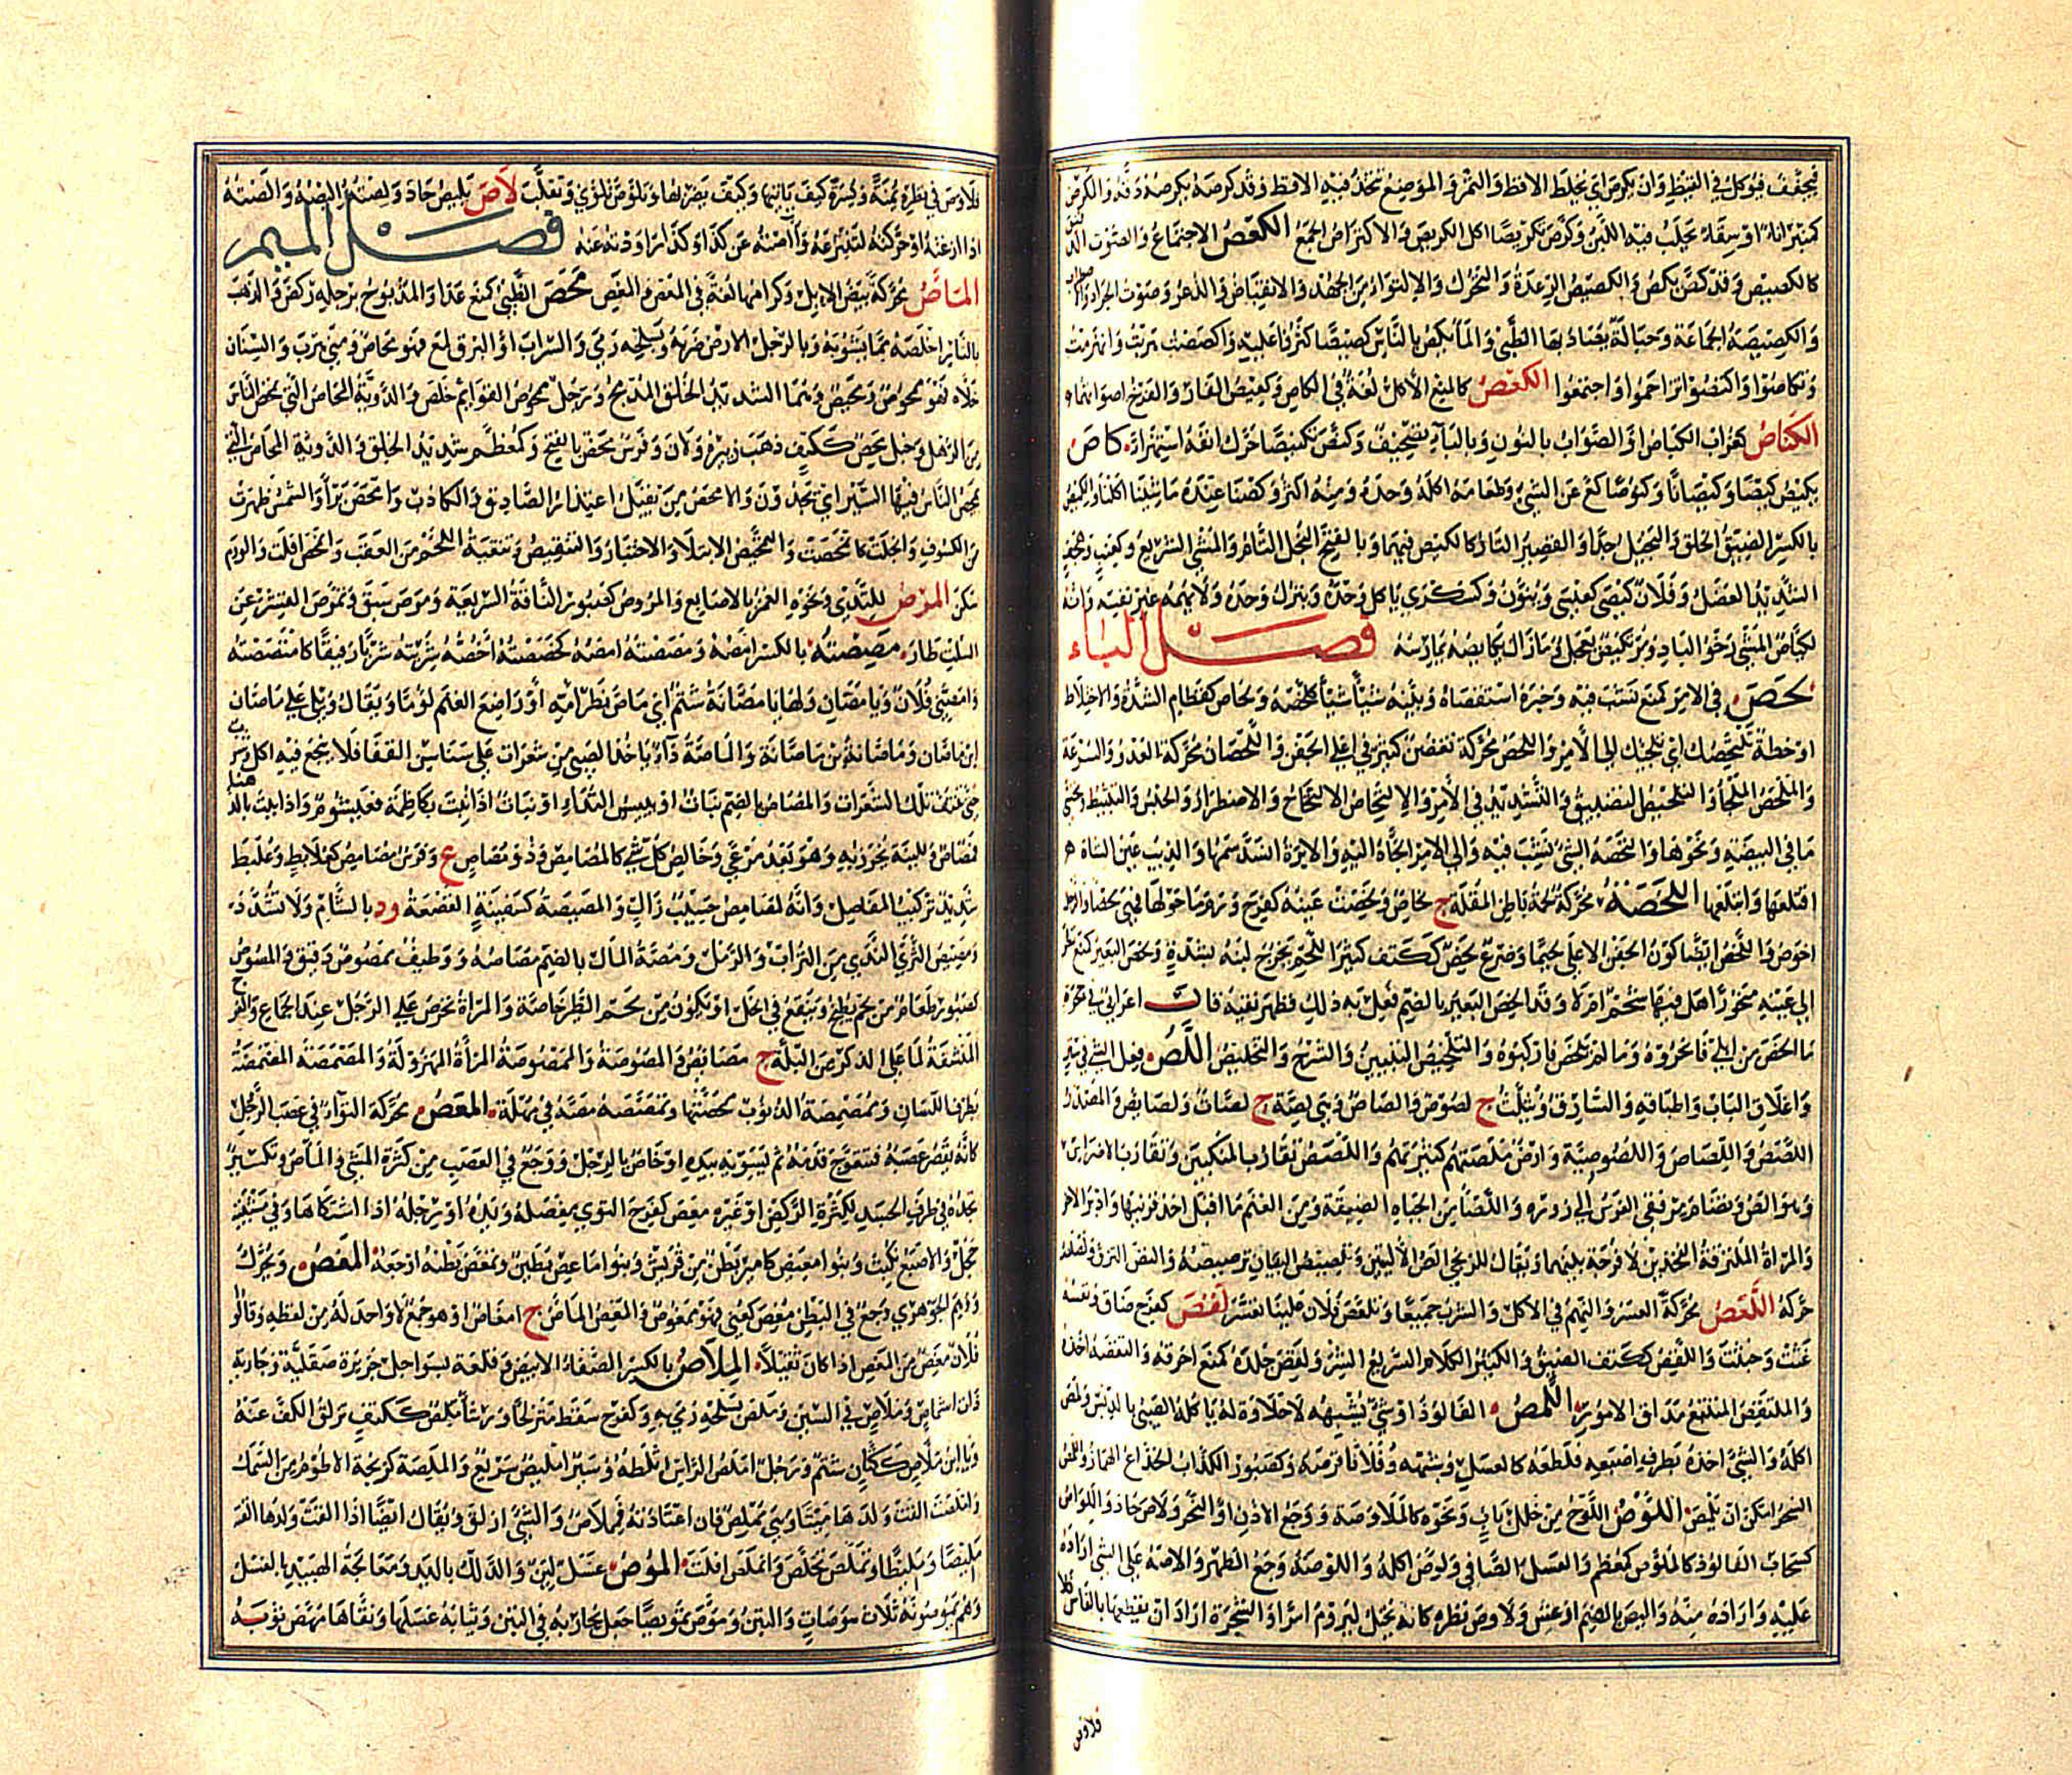 فيجفف فيؤكل في القيظ وان يكرص اي يخلط الاقط والتمر والموضع يتخذ فيه الاقط وقد كرصه يكرصه دقه والكرص
كمنبر اناء او سقاء يحلب فيه اللبن وكرص تكريصا اكل الكريص والاكتراص الجمع الكصيص الاجتماع والصوت
كالكصيص وقد كص يكص والكصيص الرعدة والتحرك والالتواء من الجهد والانقباض والذعر وصوت الجراد
والكصيصة الجماعة وحبالة يصاد بها الظبي والماء يكص بالناس كصيصا كثروا عليه واكصصت هربت وانهزمت
وتكاصوا واكتصوا تزاحموا واجتمعوا الكعص كالمنع الاكل لغة في الكاص وكعيص الفار والفرخ اصواتهما
الكناص كغراب الكباص او الصواب بالنون وبالباء تصحيف وكنص تكنيصا حرك انفه استهزاء كاص
يكيص كيصا وكيصانا وكيوصا كع عن الشيء وطعامه اكله وحده ومنه اكثر وكصنا عنده ما شئنا اكلنا والكيص
بالكسر الضيق الخلق والبخيل جدا والقصير التار كالكيص فيهما وبالفتح البخل التام والمشي السريع وكعيب وهجف
الشديد العضل وفلان كيصى كعيسى وينون وكسكرى ياكل وحده وينزل وحده ولا يهمه غير نفسه وانه
لكياص المشي رخو الباد ومر يكيص يعجل وما زال يكايصه يمارسه فصل الباء
لحص في الامر كمنع نشب فيه وخبره استقصاه وبينه شيئا شيئا كلحصه ولحاص كقطام الشدة والاختلاط
او خطة تلتحصك اي تلجئك الى الامر واللحص محركة تغضن كثير في اعلى الجفن واللحصان محركة العدو والسرعة
والملحص الملجأ والتلحيص التضييق والتشديد في الامر والالتحاص الالتحاج والاضطرار والحبس والتثبيط وتحسي
ما في البيضة ونحوها والتحصه الشيء نشب فيه والى الامر الجأه اليه والابرة انسد سمها والذيب عين الشاة
اقتلعها وابتلعها اللخصة محركة لحمة باطن المقلة ج لخاص ولخصت عينه كفرح ورم ما حولها فهي لخصاء والرجل
اخوص واللخص ايضا كون الجفن الاعلى لحيما وضرع لخص ككتف كثير اللحم يخرج لبنه بشدة ولخص البعير كمنع نظر
الى عينه منحورا هل فيها شحم ام لا وقد الخص البعير بالضم فعل به ذلك فظهر نقيه قال اعرابي في حجرة
ما الخص من ابلي فانحروه وما لم يلخص فاركبوه والتلخيص التبيين والشرح والتخليص اللص فعل الشيء في ستر
واغلاق الباب واطباقه والسارق ويثلث ج لصوص والصاص وهي لصة ج لصات ولصايص والمصدر
اللصص واللصاص واللصوصية وارض ملصة كثيرتهم واللصص تقارب المنكبين وتقارب الاضراس
وهو الص وتضام مرفقي الفرس الى زوره واللصاء من الجباه الضيقة ومن الغنم ما اقبل احد قرنيها وادبر الاخر
والمراة الملتزقة الفخذين لا فرجة بينهما ويقال للزنجي الص الاليتين وتلصيص البنيان ترصيصه والتص التزق ولصلصه
حركه اللعص محركة العسر والنهم في الاكل والشرب جميعا وتلعص فلان علينا تعسر لقص كفرح ضاق ونفسه
غثت وخبثت واللقص ككتف الضيق والكثير الكلام السريع الشر ولقص جلده كمنع احرقه والتقصه اخذه
والملتقص المتتبع مداق الامور اللمص الفالوذ او شيء يشبهه لا حلاوة له ياكله الصبي بالدبس ولمص
اكله والشيء اخذه بطرف اصبعه فلطعه كالعسل وشبهه وفلانا قرصه وكصبور الكذاب الخداع الهماز والمص
الشجر امكن ان يلمص اللوص اللمح من خلل باب ونحوه كالملاوصة ووجع الاذن او النحر ولاص حاد واللواص
كسحاب الفالوذ كالملوص كمعظم والعسل الصافي ولوص اكله واللوصة وجع الظهر والاصه على الشيء اداره
عليه واراده منه واليص بالضم ارعش ولاوص نظر كانه يختل ليروم امرا والشجرة اراد ان يقطعها بالفاس
فلاوص
فلاوص في نظره يمنة ويسرة كيف ياتيها وكيف يضربها وتلوص تلوى وتقلب لاص يليص حاد ولصته اليصه والصته
اذا ازغته او حركته لتنتزعه والاصته عن كذا وكذا راودته عنه فصل الميم
الماص محركة بيض الابل وكرامها لغة في المعص والمغص محص الظبي كمنع عدا والمذبوح برجله ركض والذهب
بالنار اخلصه مما يشوبه وبالرجل الارض ضربه وبسلحه رمى والسراب او البرق لمع فهو محاص ومني هرب والسنان
جلاه فهو محوص ومحيص وهما الشديد الخلق المدمج ورجل ممحوص القوايم خلص والدوية المحاص التي يمحص الناس
من الرمل وحبل محص ككتف ذهب زبيره ولان وفرس محص بالفتح وكمعظم شديد الخلق والدوية المحاص التي
يمحص الناس فيها السير اي يجدون والامحص من يقبل اعتذار الصادق والكاذب وامحص برأ والشمس ظهرت
من الكسوف وانجلت كانمحصت والتمحيص الابتلاء والاختبار والتنقيص وتنقية اللحم من العقب وانمحص افلت والورم
سكن المرص للثدي ونحوه الغمز بالاصابع والمروص كصبور الناقة السريعة ومرص سبق وتمرص القشر عن
السلت طار مصصته بالكسر امصه ومصصته امصه كخصصته اخصه شربته شربا رفيقا كامتصصته
وامصني فلان ويا مصان ولها يا مصانة شتم اي يا ماص بظر امه او راضع الغنم لؤما ويقال ويلي على ماصان
ابن ماصان وماصانة بن ماصانة والماصة داء ياخذ الصبي من شعرات على سناسن القفا فلا ينجع فيه اكل وشرب
حتى تنتف تلك الشعرات والمصاص بالضم نبات او يبيس الثداء او نبات اذا نبت بكاظمة فعيشوم واذا نبت بالدهناء
فمصاص وللينه يخرز به وهو يعد مرعى وخالص كل شيء كالمصامص وذو مصاص ع وفرس مصامص كعلابط وعلبط
شديد تركيب المفاصل وانه لمصامص حسيب زاك والمصيصة كسفينة القصعة ود بالشام ولا تشدد
ومصيص الثرى الندي من التراب والرمل ومصة المال بالضم مصاصه ووظيف ممصوص دقيق والمصوص
كصبور طعام من لحم يطبخ وينقع في الخل او يكون من لحم الطير خاصة والمراة تحرص على الرجل عند الجماع والفرج
المنشفة لما على الذكر من البلة ج مصايص والمصوصة والممصوصة المراة المهزولة والمصمصة المضمضة
بطرف اللسان وممصمصة الذنوب ممحصتها وتمصصه مصه في مهلة المعص محركة التواء في عصب الرجل
كانه يقصر عصبه فتتعوج قدمه ثم يسويه بيده او خاص بالرجل ووجع في العصب من كثرة المشي والماص وتكسير
تجده في طرف الجسد لكثرة الركض او غيره معص كفرح التوى مفصله ويده او رجله اذا اشتكاها وفي مشيته
حجل والاصبع نكبت وبنو معيص كامير بطن من قريش وبنو ماعص بطين وتمعص بطنه اوجعه المغص ويحرك
ووهم الجوهري وجع في البطن مغص كعني فهو ممغوص والمغص الماص ج امغاص او هو جمع لا واحد له من لفظه وقالوا
فلان مغص من المغص اذا كان ثقيلا الملاص بالكسر الصفاة الابيض وقلعة بسواحل جزيرة صقلية وجارية
ذات شماص وملاص في السين وملص بسلحه رمى به وكفرح سقط متزلجا ورشاء ملص ككتف تزلق الكف عنه
ويا ابن ملاص ككتان شتم ورجل املص الراس املطه وسير امليص سريع والملصة كزنخة الاطوم من السمك
واملصت القت ولدها ميتا وهي مملص فان اعتادته فمملاص والشيء ازلق ويقال ايضا اذا القت ولدها القته
مليصا ومليطا وتملص تخلص وانملص افلت الموص غسل لين والدلك باليد ومعالجة الهبيد بالغسل
وهم يموصونه ثلاث موصات والتبن وموص تمويصا جعل تجارته في التبن وثيابه غسلها ونقاها مهص ثوبه